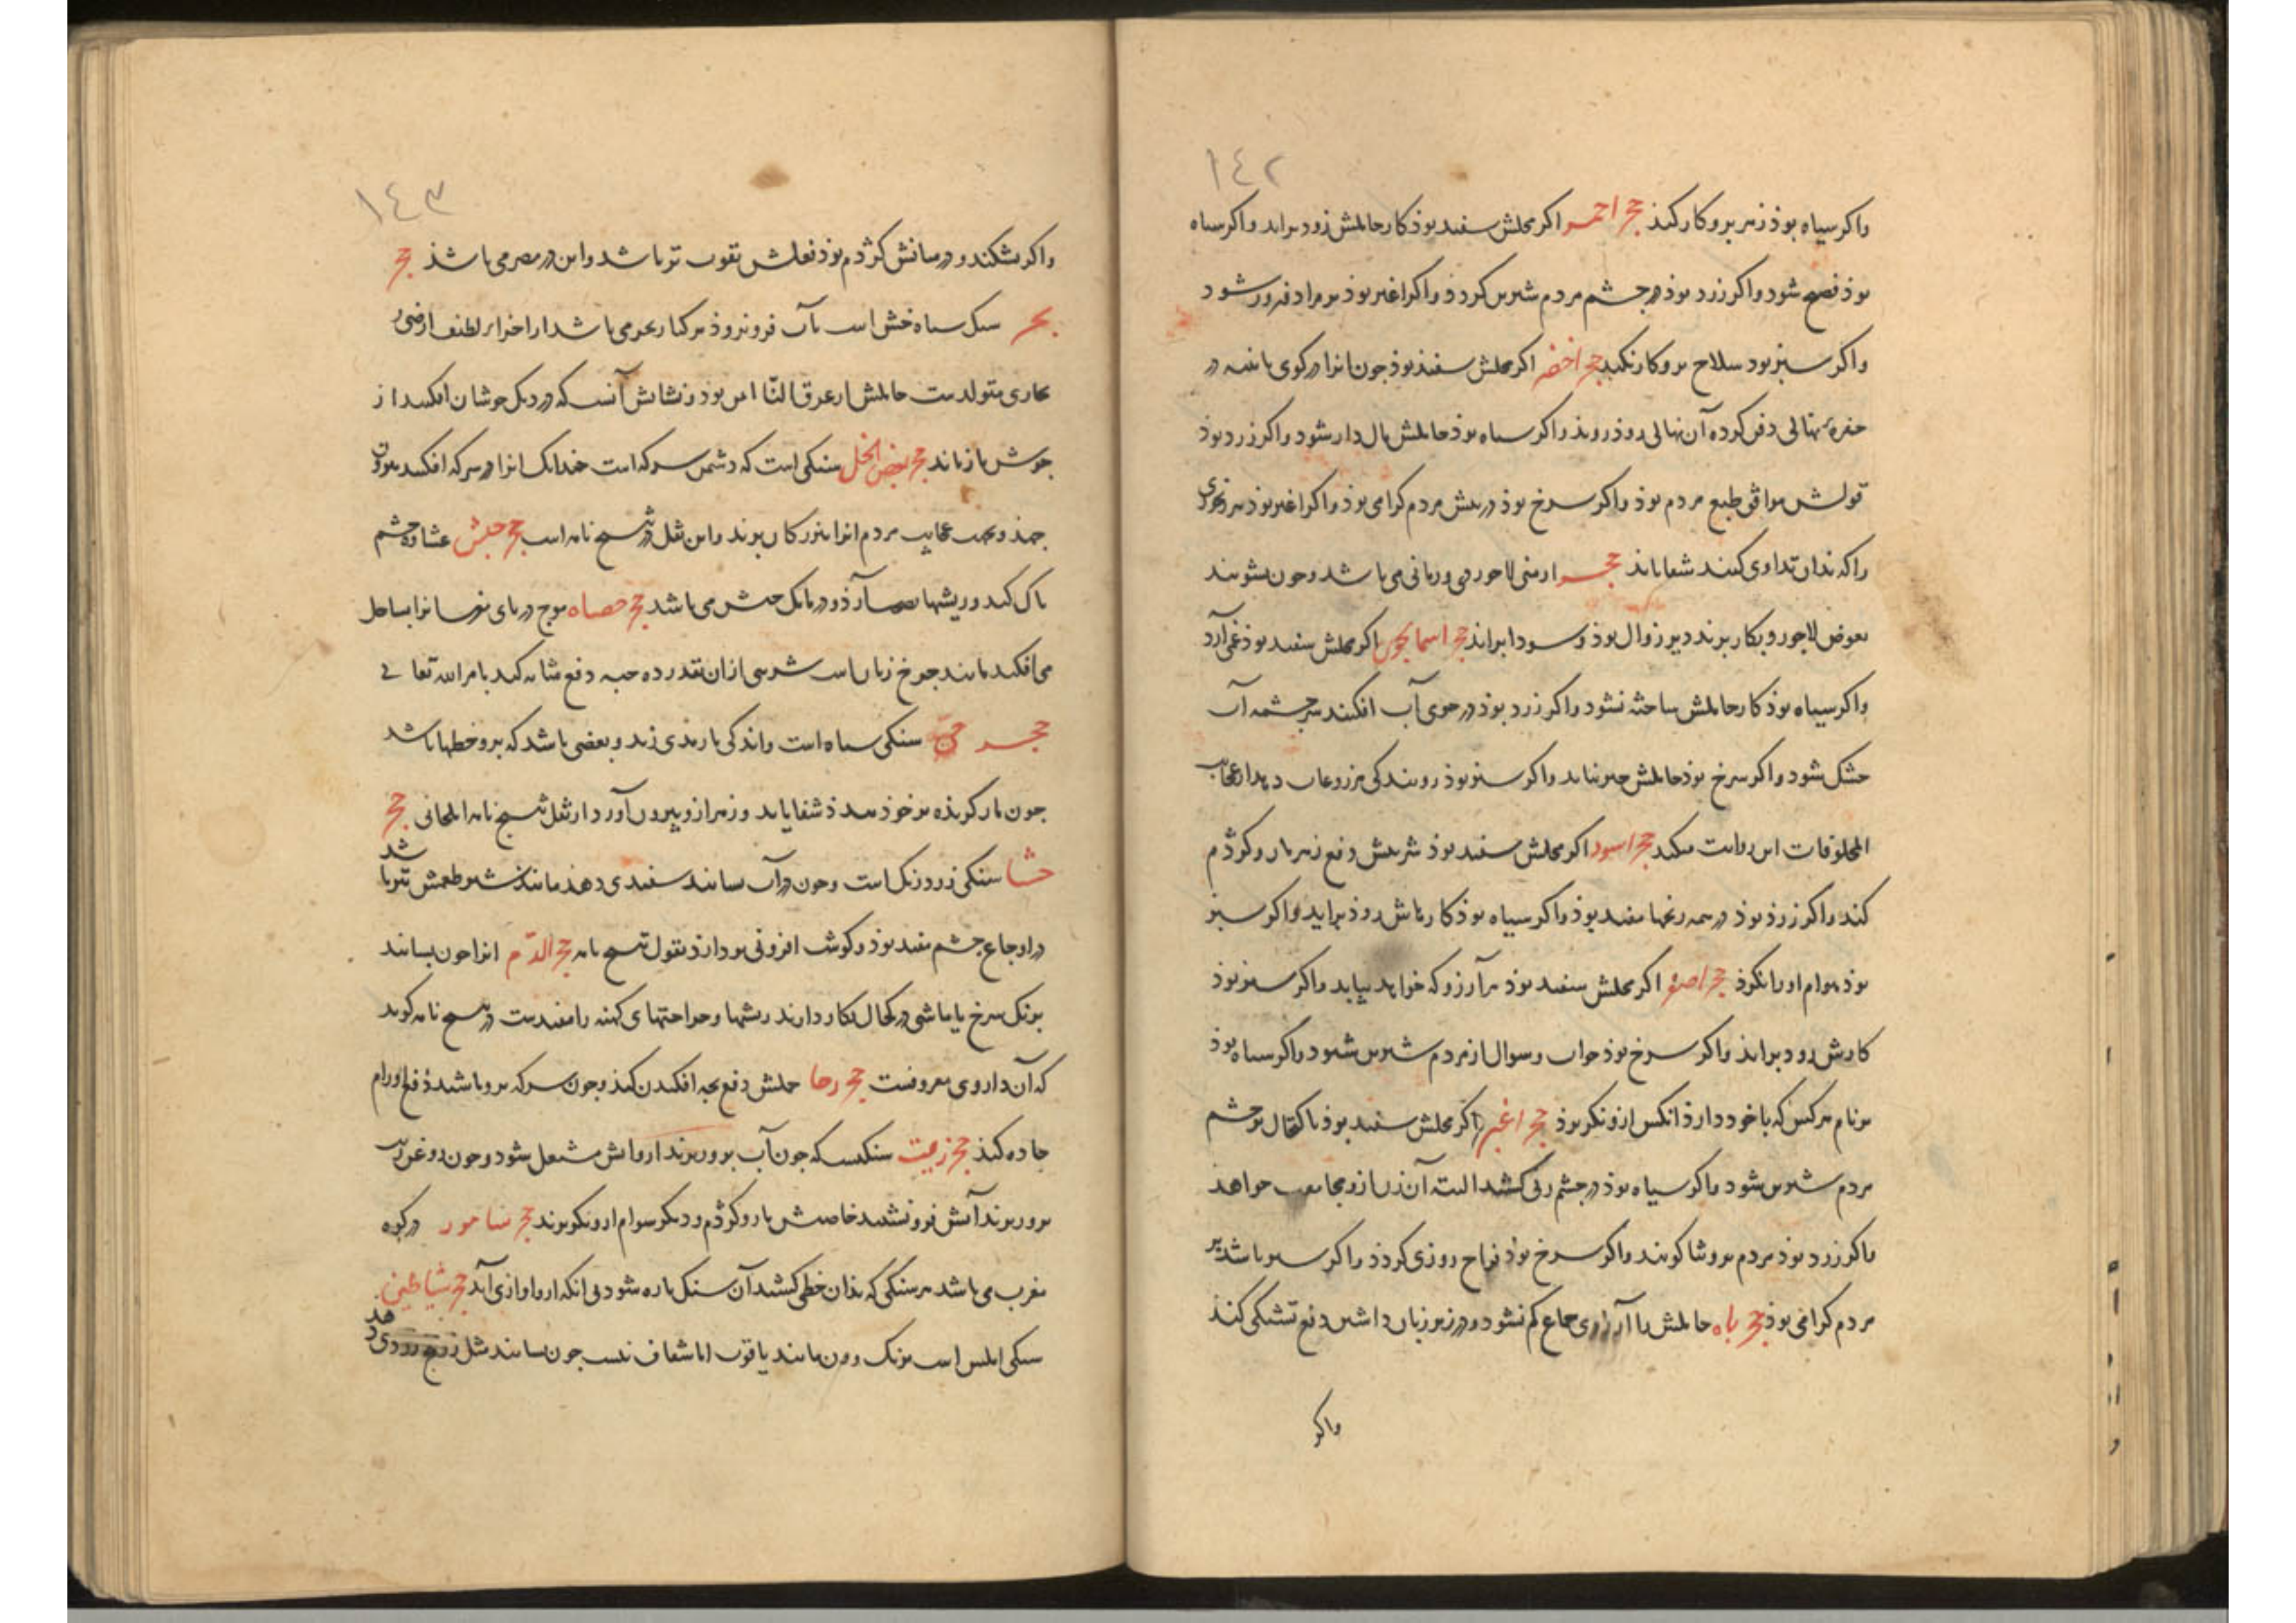 ١٤٢
واکر سیاه بوذ زهر برو کار نکند حجر احمر اکر محکش سفید بوذ کار حاملش زود براید واکر سیاه
بوذ فصیح شود واکر زرد بوذ در جشم مردم شیرین کردد واکر اغبر بوذ بر مراد فیروز شود
واکر سبز بود سلاح برو کار نکند حجر اخضر اکر محکش سفید بوذ جون انرا در کوی یا شیه در
حفره نهالی دفن کرده آن نهالی روذ روید واکر سیاه بوذ حاملش مال دار شود واکر زرد بوذ
قولش موافق طبع مردم بوذ واکر سرخ بوذ در پیش مردم کرامی بوذ واکر اغبر بوذ هر رنجوری
را که بذان تداوی کنند شفا یابذ حجر ارمنی لاجوردی ورمانی می باشد وجون بشویند
بعوض لاجورد بکار برند دیر زوال بوذ و سودا براند حجر اسمانجونی اکر محکش سفید بوذ غم آرد
واکر سیاه بوذ کار حاملش ساخته نشود واکر زرد بوذ در جوی آب افکنند سرجشمه آب
خشک شود واکر سرخ بوذ حاملش خیر نیابد واکر سبز بوذ روییدکی مزروعات دهد از عجایب
المخلوقات این روایت میکند حجر اسود اکر محکش سفید بوذ شربتش دفع زهر مار وکژدم
کند واکر زرد بوذ در همه رنجها مفید بوذ واکر سیاه بوذ کار هاش زود براید واکر سبز
بوذ هوام اورا نکزد حجر اصفر اکر محکش سفید بوذ هر آرزو که خواهد بیابد واکر سبز بوذ
کارش زود براید واکر سرخ بوذ جواب وسوال از مردم شیرین شنود واکر سیاه بوذ
بر نام هر کس که با خود دارد انکس ازو نکریزد حجر اغبر اکر محکش سفید بوذ با کتحال بوجشم
مردم شیرین شود واکر سیاه بوذ در جشم زنی کشد البته آن زن ازو مجامعت خواهد
واکر زرد بوذ مردم برو ثنا کویند واکر سرخ بوذ فراخ روزی کردد واکر سبز باشد بر
مردم کرامی بوذ حجر باه حاملش را آرزوی جماع کم نشود ودر زیر زبان داشتن دفع تشنکی کند
واکر
١٤٣
واکر بشکند ودر میانش کژدم بوذ فعلش بقوت تر باشد واین در مصر می باشد حجر
بحر سنک سیاه خشن است بآب فرو نرود بر کنار بحر می باشد از اجزاء لطیف ارضی و
بخاری متولد است حاملش از غرق النّا امن بوذ ونشانش آنست که در دیک جوشان افکنند از
جوش باز ماند حجر بغض الخل سنکی است که دشمن سرکه است جندانک انرا در سرکه افکنند بیرون
جهد وبجهت عجایب مردم انرا بزرکان برند واین نقل در تنسخ نامه است حجر حبش عشاوه جشم
پاک کند وریشها بصلاح آرذ ودر مالک حبش می باشد حجر حصاه موج دریای مغرب انرا بساحل
می افکند مانند جرخ زنان است شربتی از ان بقدر ده حبه دفع مثانه کند بامر الله تعالی
حجر حیّه سنکی سیاه است واندکی بازردی زند وبعضی باشد که برو خطها باشد
جون مار کزیده بر خوذ بندد شفا یابد وزهر ازو بیرون آورد از نقل تنسخ نامه ایلخانی حجر
خشا سنکی زرد رنک است وجون در آب سایند سفیدی دهد مانند شیر طعمش تیز باشد
در اوجاع جشم مفید بوذ وکوشت افزونی بردارد بقول تنسخ نامه حجر الدّم انرا جون بسایند
برنک سرخ یا ماشی در کحال بکار دارند ریشها وجراحتهای کهنه را مفیدست در تنسخ نامه کوید
که آن داروی معروفست حجر رحا حملش دفع بجه افکندن کند وجون سرکه برو باشند دفع اورام
حاده کند حجر زیت سنکیست که جون آب برو ریزند ازو آتش مشتعل شود وجون روغن زیت
برو ریزند آتش فرو نشیند خاصیتش مار وکژدم ودیکر هوام ازو بکریزند حجر سامور در کوه
مغرب می باشد هر سنکی که بذان خطی کشند آن سنک پاره شود بی انکه ازو اوازی آید حجر شیاطین
سنکی املس است برنک ولون مانند یاقوت اما شفاف نیست جون بسایند مثل زرنیخ زردی دهد